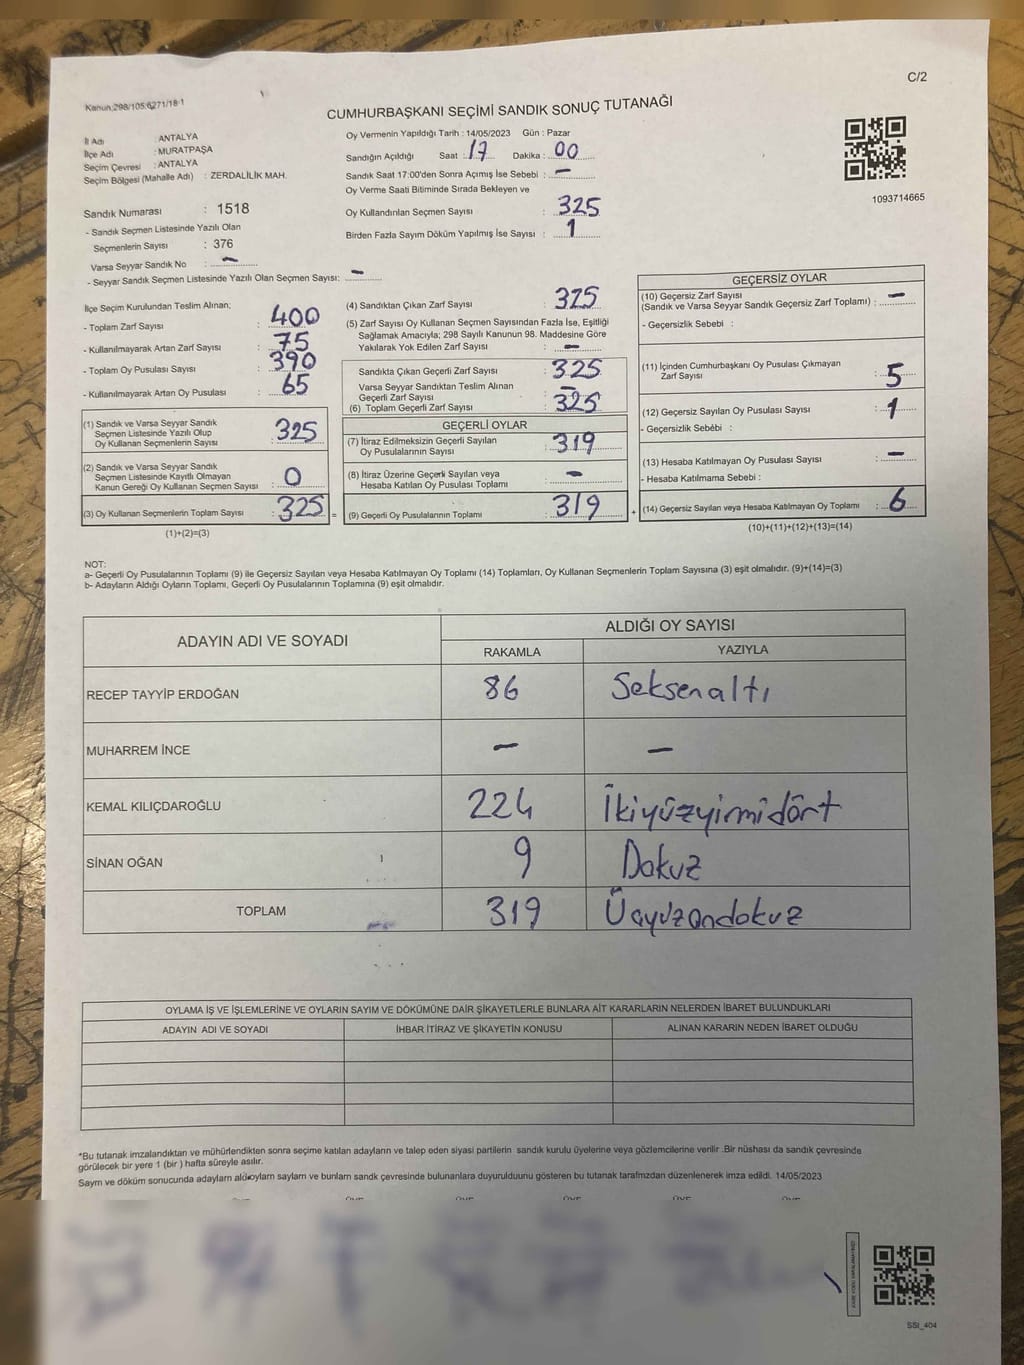 C/2
Kanun:298/105;6271/18-1
CUMHURBAŞKANI SEÇİMİ SANDIK SONUÇ TUTANAĞI
İl Adı : ANTALYA
İlçe Adı : MURATPAŞA
Seçim Çevresi : ANTALYA
Seçim Bölgesi (Mahalle Adı) : ZERDALİLİK MAH.
Sandık Numarası : 1518
- Sandık Seçmen Listesinde Yazılı Olan
Seçmenlerin Sayısı : 376
Varsa Seyyar Sandık No : –
- Seyyar Sandık Seçmen Listesinde Yazılı Olan Seçmen Sayısı: –
Oy Vermenin Yapıldığı Tarih : 14/05/2023 Gün : Pazar
Sandığın Açıldığı Saat : 17 Dakika : 00
Sandık Saat 17:00'den Sonra Açımış İse Sebebi : –
Oy Verme Saati Bitiminde Sırada Bekleyen ve
Oy Kullandırılan Seçmen Sayısı : 325
Birden Fazla Sayım Döküm Yapılmış İse Sayısı : 1
1093714665
İlçe Seçim Kurulundan Teslim Alınan;
- Toplam Zarf Sayısı : 400
- Kullanılmayarak Artan Zarf Sayısı : 75
- Toplam Oy Pusulası Sayısı : 390
- Kullanılmayarak Artan Oy Pusulası : 65
(1) Sandık ve Varsa Seyyar Sandık
Seçmen Listesinde Yazılı Olup
Oy Kullanan Seçmenlerin Sayısı : 325
(2) Sandık ve Varsa Seyyar Sandık
Seçmen Listesinde Kayıtlı Olmayan
Kanun Gereği Oy Kullanan Seçmen Sayısı : 0
(3) Oy Kullanan Seçmenlerin Toplam Sayısı : 325 =
(1)+(2)=(3)
(4) Sandıktan Çıkan Zarf Sayısı : 325
(5) Zarf Sayısı Oy Kullanan Seçmen Sayısından Fazla İse, Eşitliği
Sağlamak Amacıyla; 298 Sayılı Kanunun 98. Maddesine Göre
Yakılarak Yok Edilen Zarf Sayısı : –
Sandıkta Çıkan Geçerli Zarf Sayısı : 325
Varsa Seyyar Sandıktan Teslim Alınan
Geçerli Zarf Sayısı : –
(6) Toplam Geçerli Zarf Sayısı : 325
GEÇERLİ OYLAR
(7) İtiraz Edilmeksizin Geçerli Sayılan
Oy Pusulalarının Sayısı : 319
(8) İtiraz Üzerine Geçerli Sayılan veya
Hesaba Katılan Oy Pusulası Toplamı : –
(9) Geçerli Oy Pusulalarının Toplamı : 319 +
GEÇERSİZ OYLAR
(10) Geçersiz Zarf Sayısı
(Sandık ve Varsa Seyyar Sandık Geçersiz Zarf Toplamı) : –
- Geçersizlik Sebebi :
(11) İçinden Cumhurbaşkanı Oy Pusulası Çıkmayan
Zarf Sayısı : 5
(12) Geçersiz Sayılan Oy Pusulası Sayısı : 1
- Geçersizlik Sebebi :
(13) Hesaba Katılmayan Oy Pusulası Sayısı : –
- Hesaba Katılmama Sebebi :
(14) Geçersiz Sayılan veya Hesaba Katılmayan Oy Toplamı : 6
(10)+(11)+(12)+(13)=(14)
NOT:
a- Geçerli Oy Pusulalarının Toplamı (9) ile Geçersiz Sayılan veya Hesaba Katılmayan Oy Toplamı (14) Toplamları, Oy Kullanan Seçmenlerin Toplam Sayısına (3) eşit olmalıdır. (9)+(14)=(3)
b- Adayların Aldığı Oyların Toplamı, Geçerli Oy Pusulalarının Toplamına (9) eşit olmalıdır.
ADAYIN ADI VE SOYADI
ALDIĞI OY SAYISI
RAKAMLA YAZIYLA
RECEP TAYYİP ERDOĞAN 86 Seksenaltı
MUHARREM İNCE – –
KEMAL KILIÇDAROĞLU 224 İkiyüzyirmidört
SİNAN OĞAN 9 Dokuz
TOPLAM 319 Üçyüzondokuz
OYLAMA İŞ VE İŞLEMLERİNE VE OYLARIN SAYIM VE DÖKÜMÜNE DAİR ŞİKAYETLERLE BUNLARA AİT KARARLARIN NELERDEN İBARET BULUNDUKLARI
ADAYIN ADI VE SOYADI İHBAR İTİRAZ VE ŞİKAYETİN KONUSU ALINAN KARARIN NEDEN İBARET OLDUĞU
*Bu tutanak imzalandıktan ve mühürlendikten sonra seçime katılan adayların ve talep eden siyasi partilerin sandık kurulu üyelerine veya gözlemcilerine verilir .Bir nüshası da sandık çevresinde
görülecek bir yere 1 (bir ) hafta süreyle asılır.
Sayım ve döküm sonucunda adayların aldıoyların sayların ve bunların sandık çevresinde bulunanlara duyurulduunu gösteren bu tutanak tarafmzdan düzenlenerek imza edildi. 14/05/2023
SSI_404